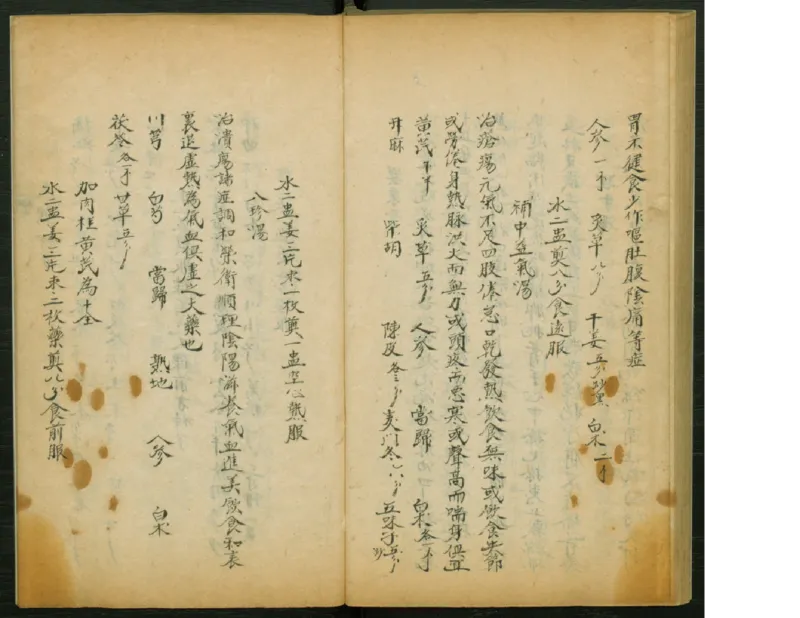 胃不健食少作嘔肚腹陰痛等症
人參一才 炙草八分 干姜五分炒黑 白朮二才
水二盅煎八分食遠服
補中益氣湯
治瘡瘍元氣不足四肢倦怠口乾發熱飲食無味或飲食失節
或勞倦身熱脉洪大而無力或頭疼而惡寒或聲高而喘身俱
黃茋 炙草五分 人參 當歸 白朮各一才
升麻 柴胡 陳皮各三分 麦门冬六分 五味子五分炒
水二盅姜三片枣一枚煎一盅空心熱服
八珍湯
治潰瘍諸症調和榮衛順理陰陽滋養氣血進美飲食和表
裏退虛熱為氣血俱虛之大藥也
川芎 白芍 當歸 熟地 人參 白朮
茯苓各一才 甘草五分
加肉桂黃茋為十全
水二盅姜三片枣二枚藥煎八分食前服